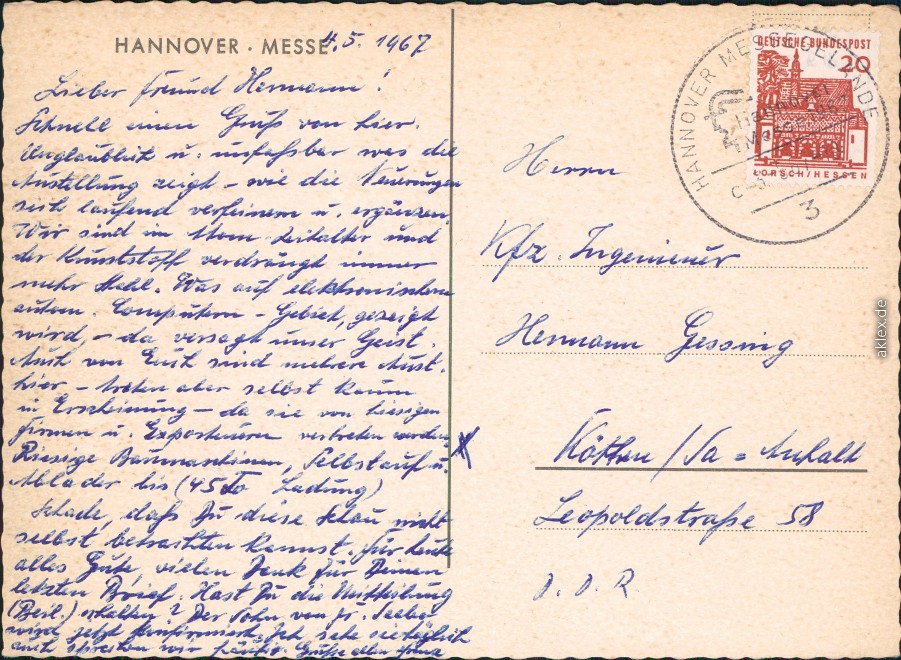 HANNOVER · MESSE
4.5.1967
Lieber Freund Hermann!
Schnell einen Gruß von hier.
Unglaublich u. unfaßbar was die
Ausstellung zeigt – wie die Neuerungen
sich laufend verfeinern u. ergänzen.
Wir sind im Atom Zeitalter und
der Kunststoff verdrängt immer
mehr Stahl. Was auf elektronischem
autom. Computern – Gebiet, gezeigt
wird, – da versagt unser Geist.
Auch von Euch sind mehrere Ausst.
hier – treten aber selbst kaum
in Erscheinung – da sie von hiesigen
Firmen u. Exporteuren vertreten werden
Riesige Baumaschinen, Selbstauf u.
Ablader bis (45 To Ladung)
Schade, daß Du diese Schau nicht
selbst betrachten kannst. Für heute
alles Gute, vielen Dank für Deinen
letzten Brief. Hast Du die Mitteilung
(Beil.) erhalten? Der Sohn von Fr. Seebo
wird jetzt konfirmiert. Ich sehe sie täglich
auch sprechen wir häufig. Grüße allen
Herrn
Kfz. Ingenieur
Hermann Gessing
Köthen / Sa = Anhalt
Leopoldstraße 58
D. D. R
DEUTSCHE BUNDESPOST
20
LORSCH/HESSEN
HANNOVER MESSEGELÄNDE
Hannover
Messe
3
aklex.de